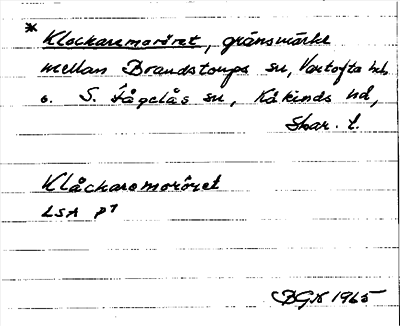 * Klockaremoröret, gränsmärke
mellan Brandstorps sn, Vartofta hd.
o. S. Fågelås sn, Kåkinds hd,
Skar. l.
Klåckaremoröret
LSA P7
BGN 1965